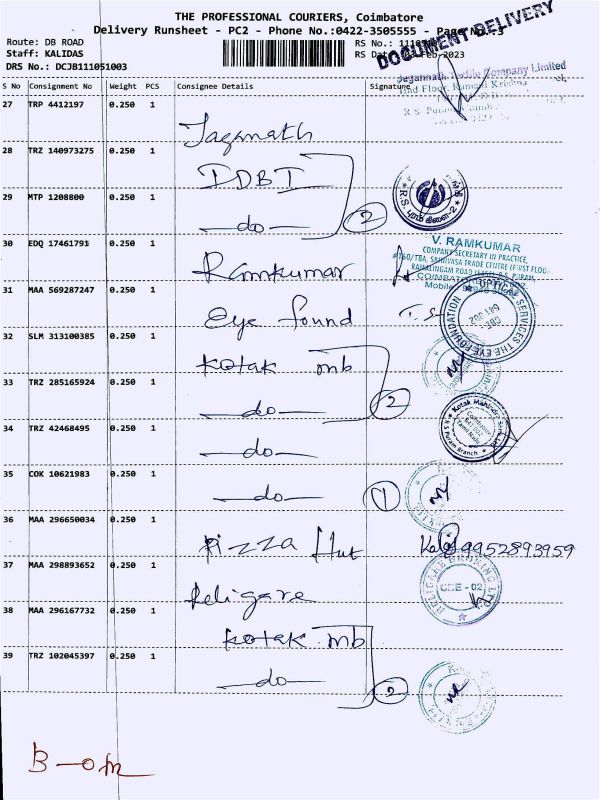 THE PROFESSIONAL COURIERS, Coimbatore
Delivery Runsheet - PC2 - Phone No.:0422-3505555 -
DOCUMENT DELIVERY
Route: DB ROAD
Staff: KALIDAS
DRS No.: DCJB111051003
RS No.:
Jagannath Textile Company Limited
S No Consignment No Weight PCS Consignee Details Signature
27 TRP 4412197 0.250 1 Jaganath
28 TRZ 140973275 0.250 1 IDBI
29 MTP 1208800 0.250 1 —do— 2
30 EDQ 17461791 0.250 1 Ramkumar
V. RAMKUMAR
COMPANY SECRETARY IN PRACTICE,
SRINIVASA TRADE CENTRE (FIRST FLOOR)
31 MAA 569287247 0.250 1 Eye found
OPTICAL SERVICES THE EYE FOUNDATION
CBE-
641 002
32 SLM 313100385 0.250 1 Kotak mb
33 TRZ 285165924 0.250 1 —do— 2
34 TRZ 42468495 0.250 1 —do—
Kotak Mahindra Bank
Coimbatore
Tamil Nadu
R S Puram Branch
35 COK 10621983 0.250 1 —do— 1
36 MAA 296650034 0.250 1 Pizza Hut 9952893959
37 MAA 298893652 0.250 1 Religare
RELIGARE BROKING LTD
CBE - 02
38 MAA 296167732 0.250 1 Kotak mb
39 TRZ 102045397 0.250 1 —do— 2